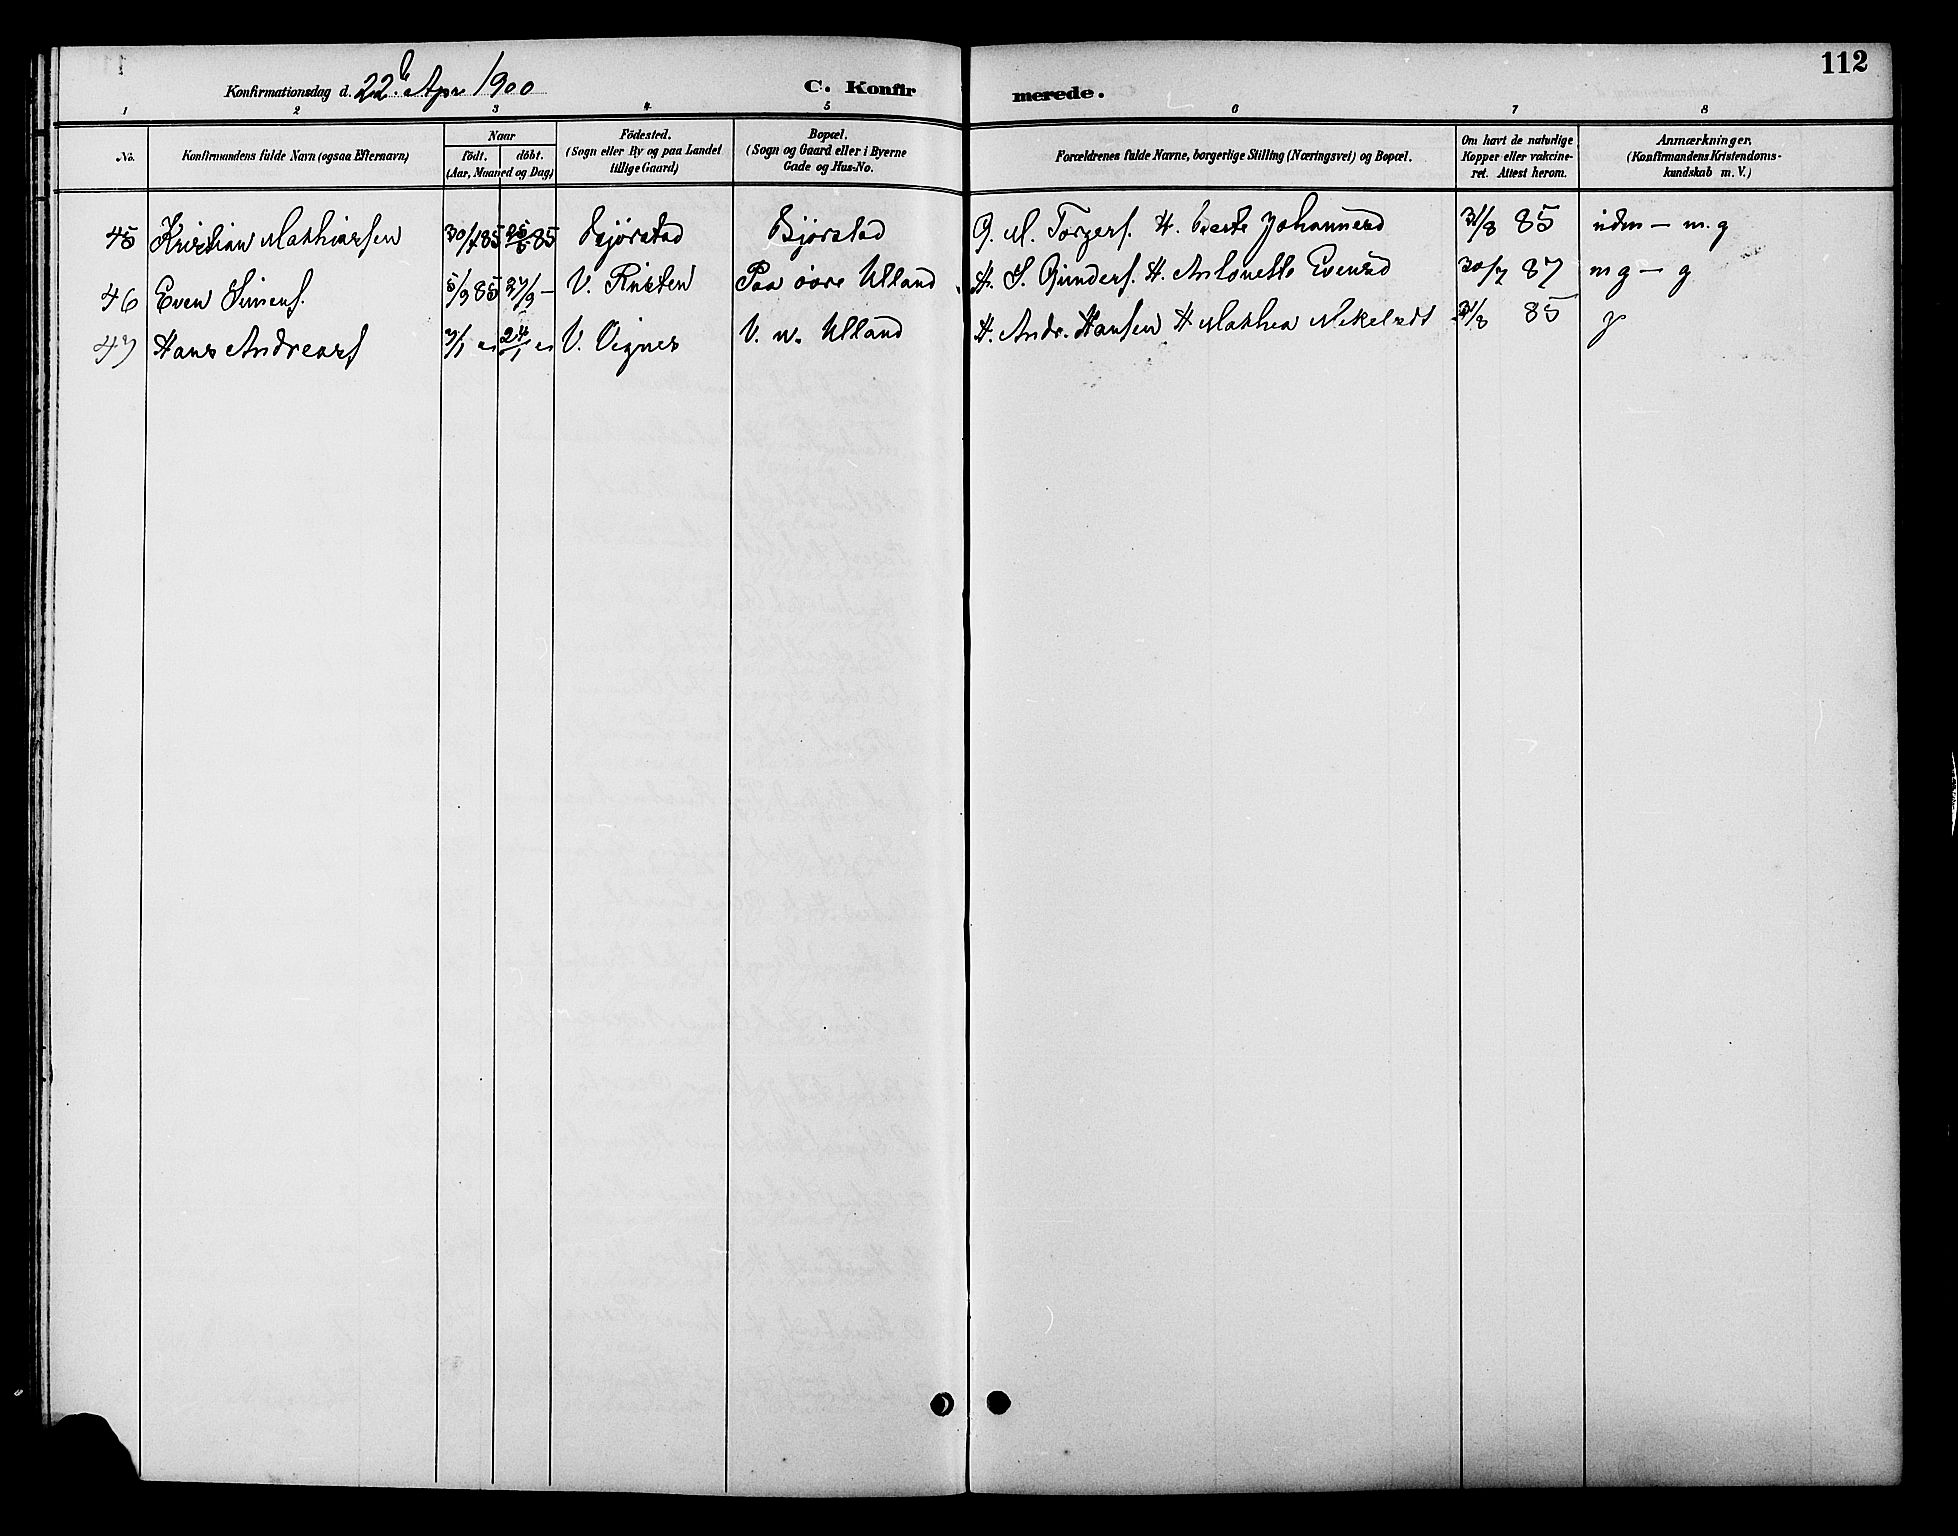 112
Konfirmationsdag d. 22de Apr 1900
C. Konfirmerede.
1 2 3 4 5 6 7 8
No.
Konfirmandens fulde Navn (ogsaa Efternavn)
Naar
födt. döbt.
(Aar, Maaned og Dag)
Födested.
(Sogn eller By og paa Landet
tillige Gaard)
Bopæl.
(Sogn og Gaard eller i Byerne
Gade og Hus-No.
Forældrenes fulde Navne, borgerlige Stilling (Næringsvei) og Bopæl.
Om havt de naturlige
Kopper eller vakcine-
ret. Attest herom.
Anmærkninger.
(Konfirmandens Kristendoms-
kundskab m. V.)
45 Kristian Mathiassen 30/7 85 85 Bjørstad Bjørstad G. M. Torgers. H. Johannesd 31/8 85 udm - m. g
46 Even Simens. 5/9 85 27/9 - V. Paa övre Ulland H. S. Gunders. H. Antonette Evensd 30/7 87 m g - g
47 Hans Andreass 3/1 24/1 V. Vignes V. n. Ulland H. Andr. Hansen H Mathea Mikelsdt 31/8 85 g